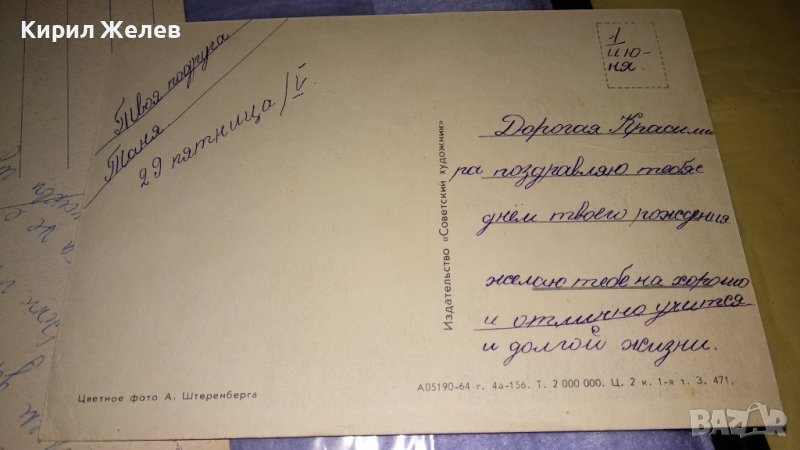 Кирил Желев
Твоя подруга
Таня
29 пятница/V.
1
ию-
ня.
Дорогая Красими
ра поздравляю тебя с
днём твоего рождения
желаю тебе на хорошо
и отлично учится
и долгой жизни.
Издательство «Советский художник»
Цветное фото А. Штеренберга
А05190-64 г. 4а-156. Т. 2 000 000. Ц. 2 к. 1-я т. З. 471.
BAZAR